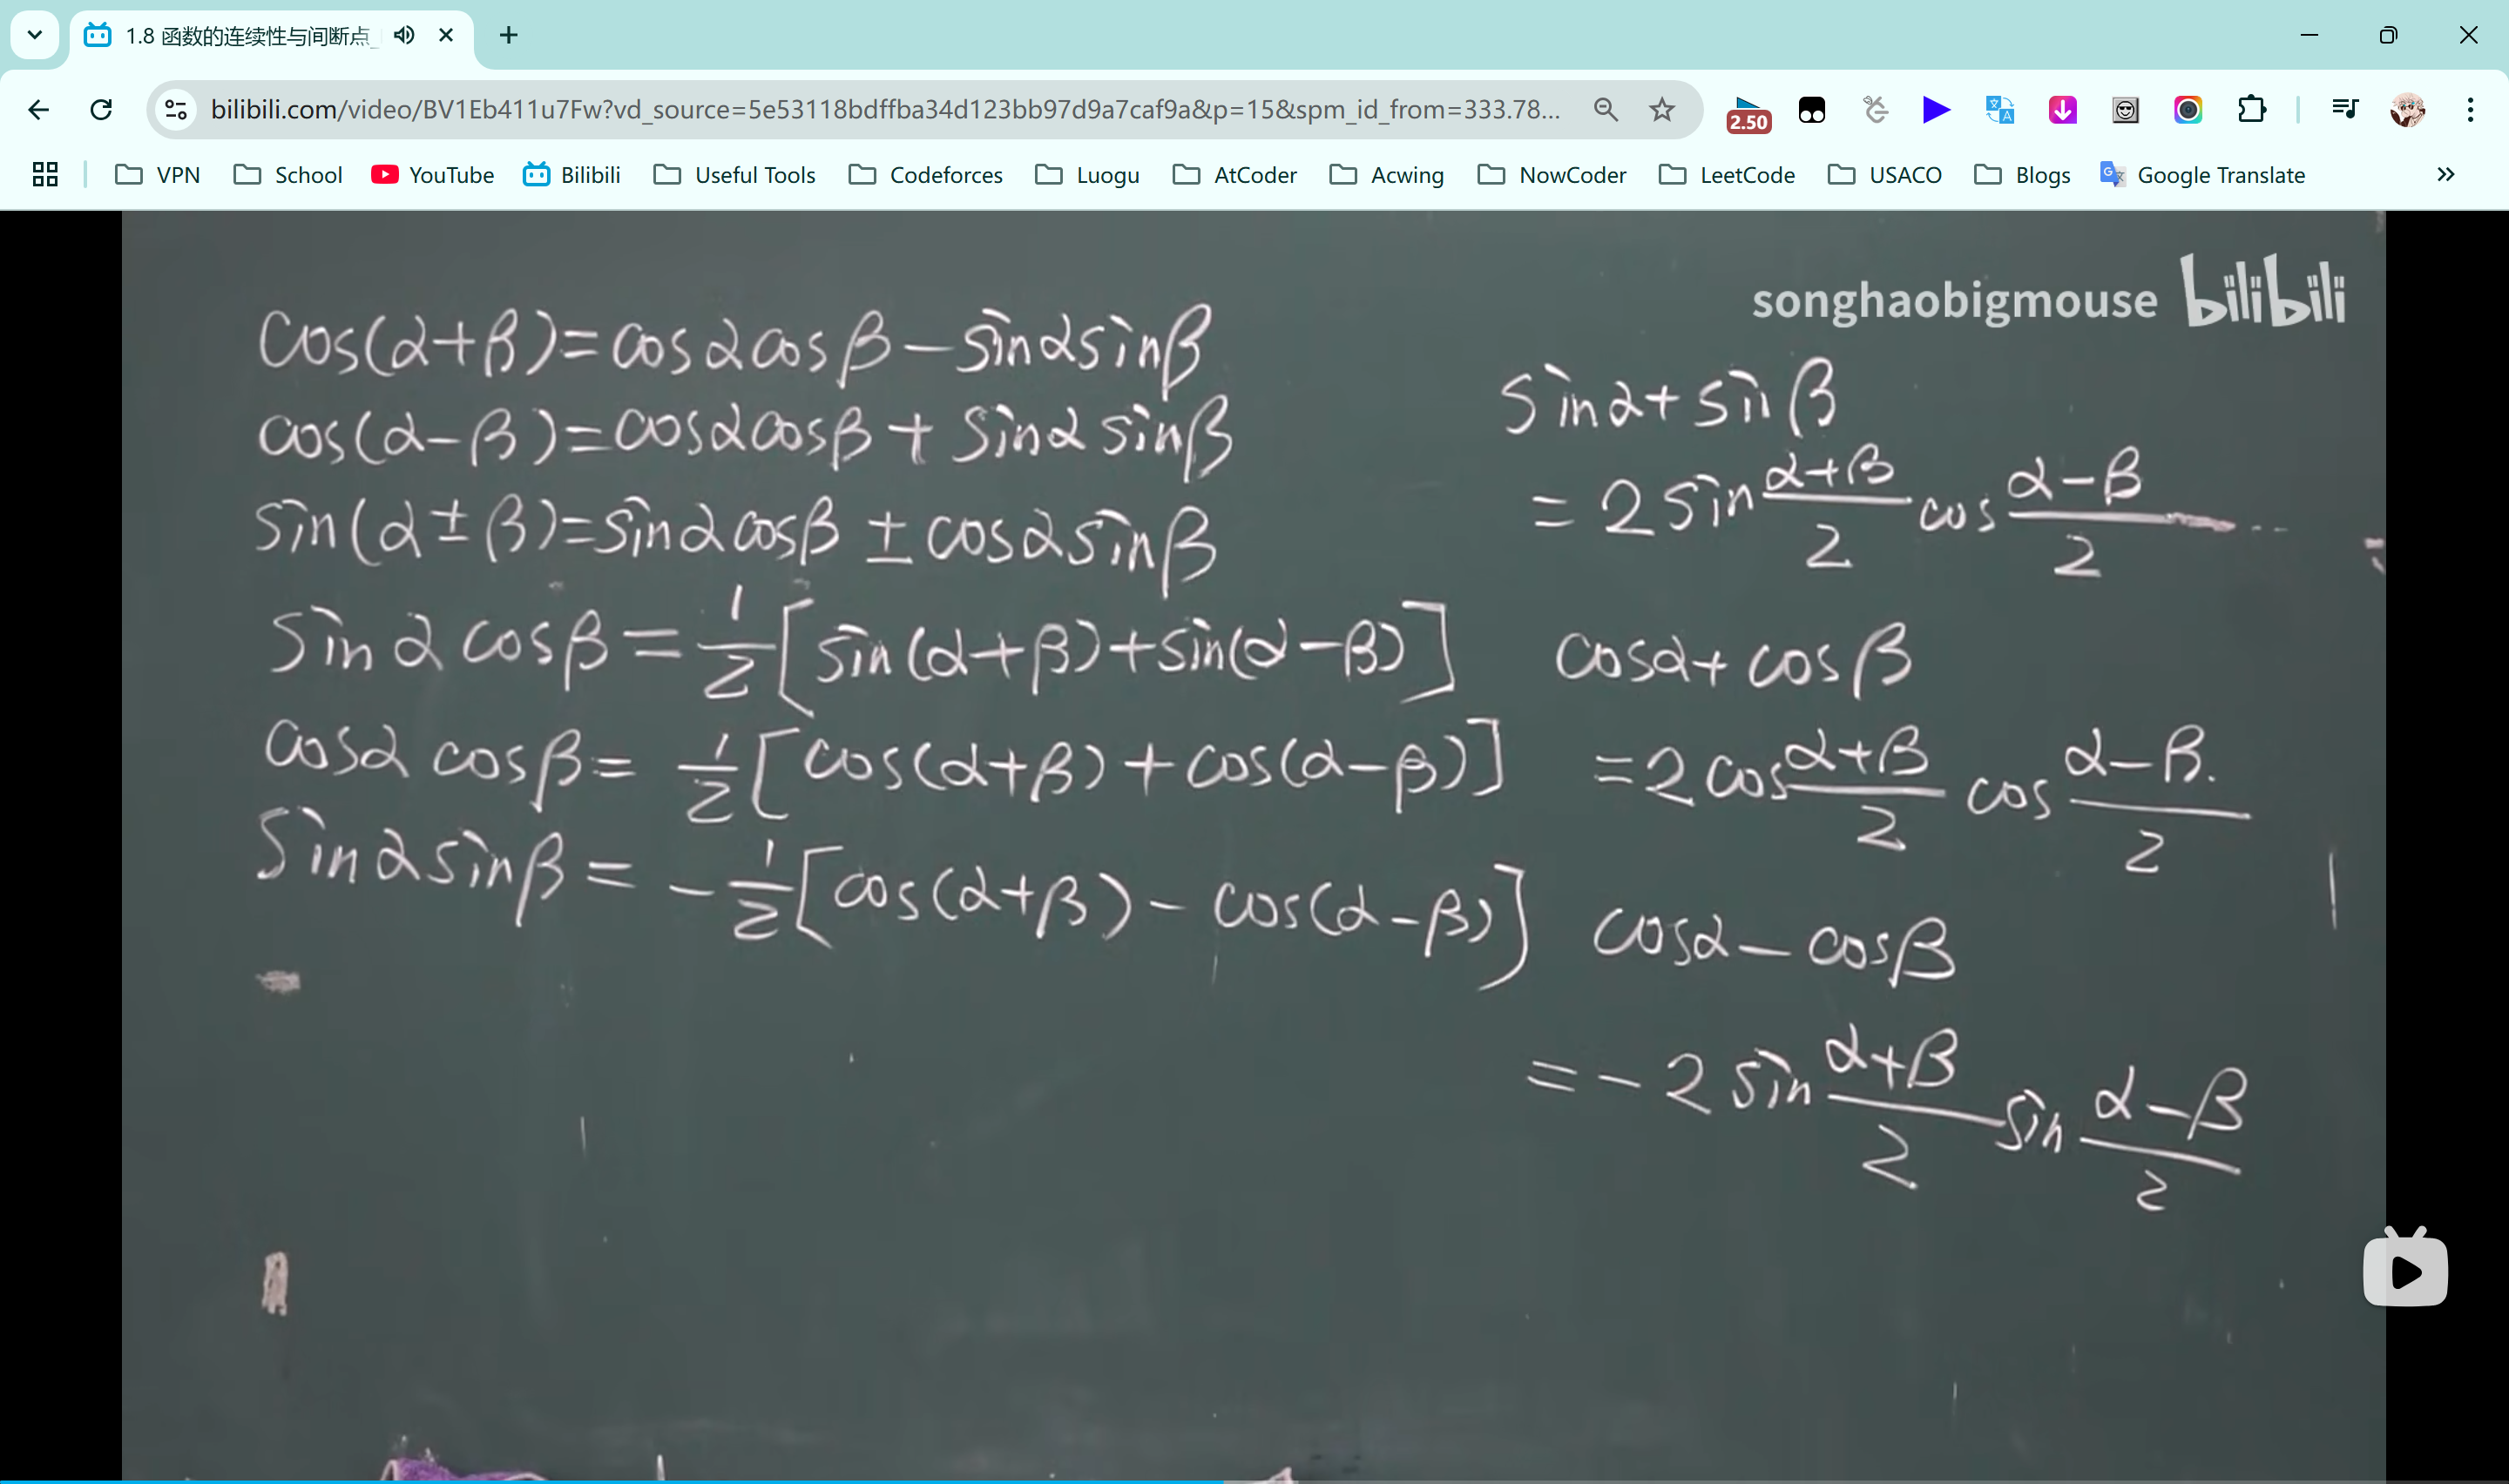 1.8 函数的连续性与间断点_
bilibili.com/video/BV1Eb411u7Fw?vd_source=5e53118bdffba34d123bb97d9a7caf9a&p=15&spm_id_from=333.78...
2.50
VPN School YouTube Bilibili Useful Tools Codeforces Luogu AtCoder Acwing NowCoder LeetCode USACO Blogs Google Translate
songhaobigmouse bilibili
cos(α+β)=cosαcosβ-sinαsinβ
cos(α-β)=cosαcosβ+sinαsinβ
sin(α±β)=sinαcosβ±cosαsinβ
sinαcosβ=1/2[sin(α+β)+sin(α-β)]
cosαcosβ=1/2[cos(α+β)+cos(α-β)]
sinαsinβ=-1/2[cos(α+β)-cos(α-β)]
sinα+sinβ
=2sin α+β/2 cos α-β/2
cosα+cosβ
=2cos α+β/2 cos α-β/2
cosα-cosβ
=-2sin α+β/2 sin α-β/2